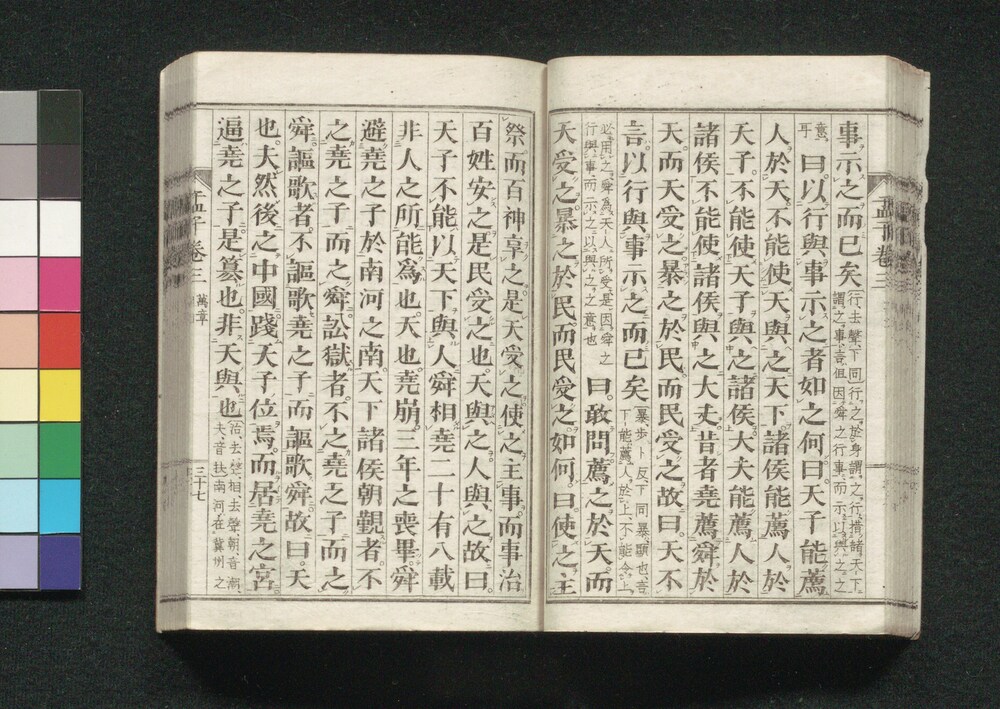 事示之而已矣行去聲、下同○行之於身謂之行、措諸天下
謂之事、言但因舜之行事、而示以與之之
意耳曰。以行與事示之者如之何曰。天子能薦
人於天。不能使天與之天下。諸侯能薦人於
天子。不能使天子與之諸侯。大夫能薦人於
諸侯。不能使諸侯與之大夫。昔者堯薦舜於
天而天受之。暴之於民而民受之。故曰。天不
言。以行與事示之而已矣暴、步卜反、下同○暴顯也、言
下能薦人於上、不能令上
必用之、舜為天人所受、是因舜之
行與事、而示之以與之之意也曰。敢問薦之於天。而
天受之。暴之於民而民受之。如何。曰。使之主
祭而百神享之。是天受之。使之主事。而事治
百姓安之。是民受之也。天與之。人與之。故曰。
天子不能以天下與人。舜相堯二十有八載
非人之所能為也。天也。堯崩。三年之喪畢。舜
避堯之子於南河之南。天下諸侯朝覲者。不
之堯之子而之舜。訟獄者。不之堯之子而之
舜。謳歌者。不謳歌堯之子而謳歌舜。故曰。天
也。夫然後之中國。踐天子位焉。而居堯之宮
逼堯之子。是篡也。非天與也治、去聲、相、去聲、朝、音潮、
夫、音扶○南河在冀州之
孟子卷三
孟子卷三
萬章
三十七